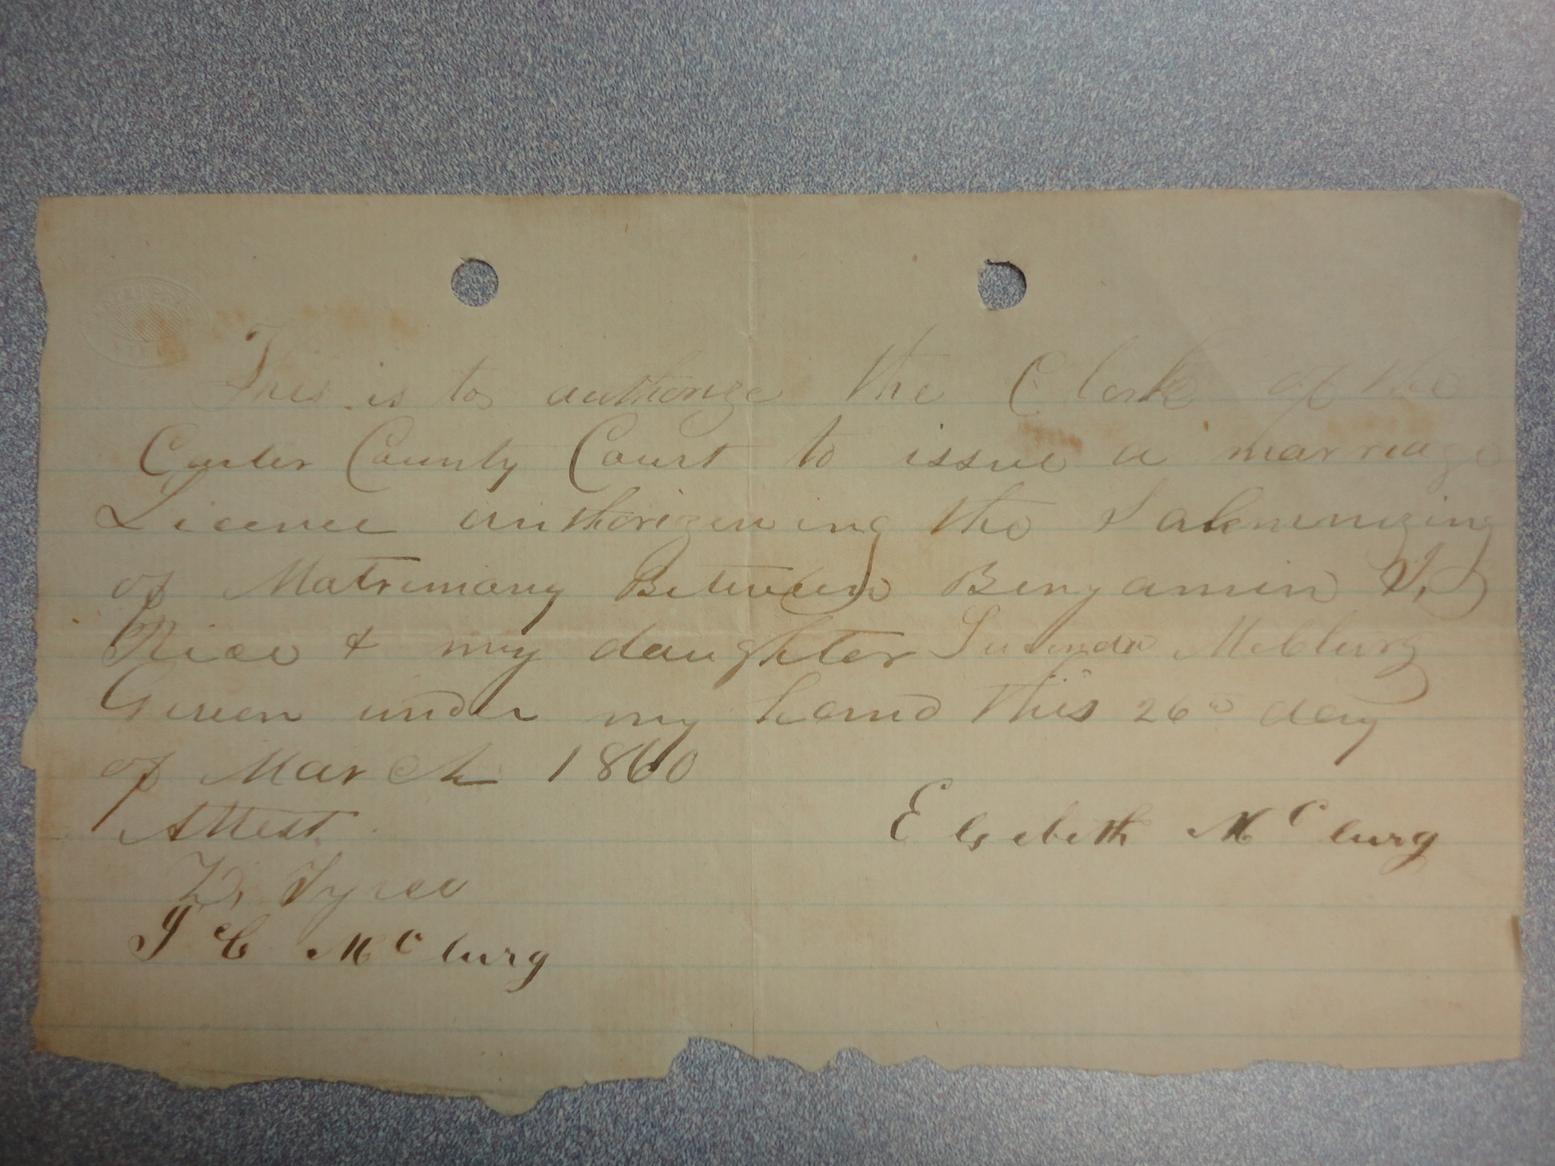 This is to authorize the Clerk of the
Carter County Court to issue a marriage
Licence authorizeing the Salemnizing
of Matrimony Between Benjamin
Rice & my daughter McClurg
Given under my hand this 26 day
of March 1860
Attest
Elizibeth Mc Clurg
D. Tyree
J C Mc Clurg